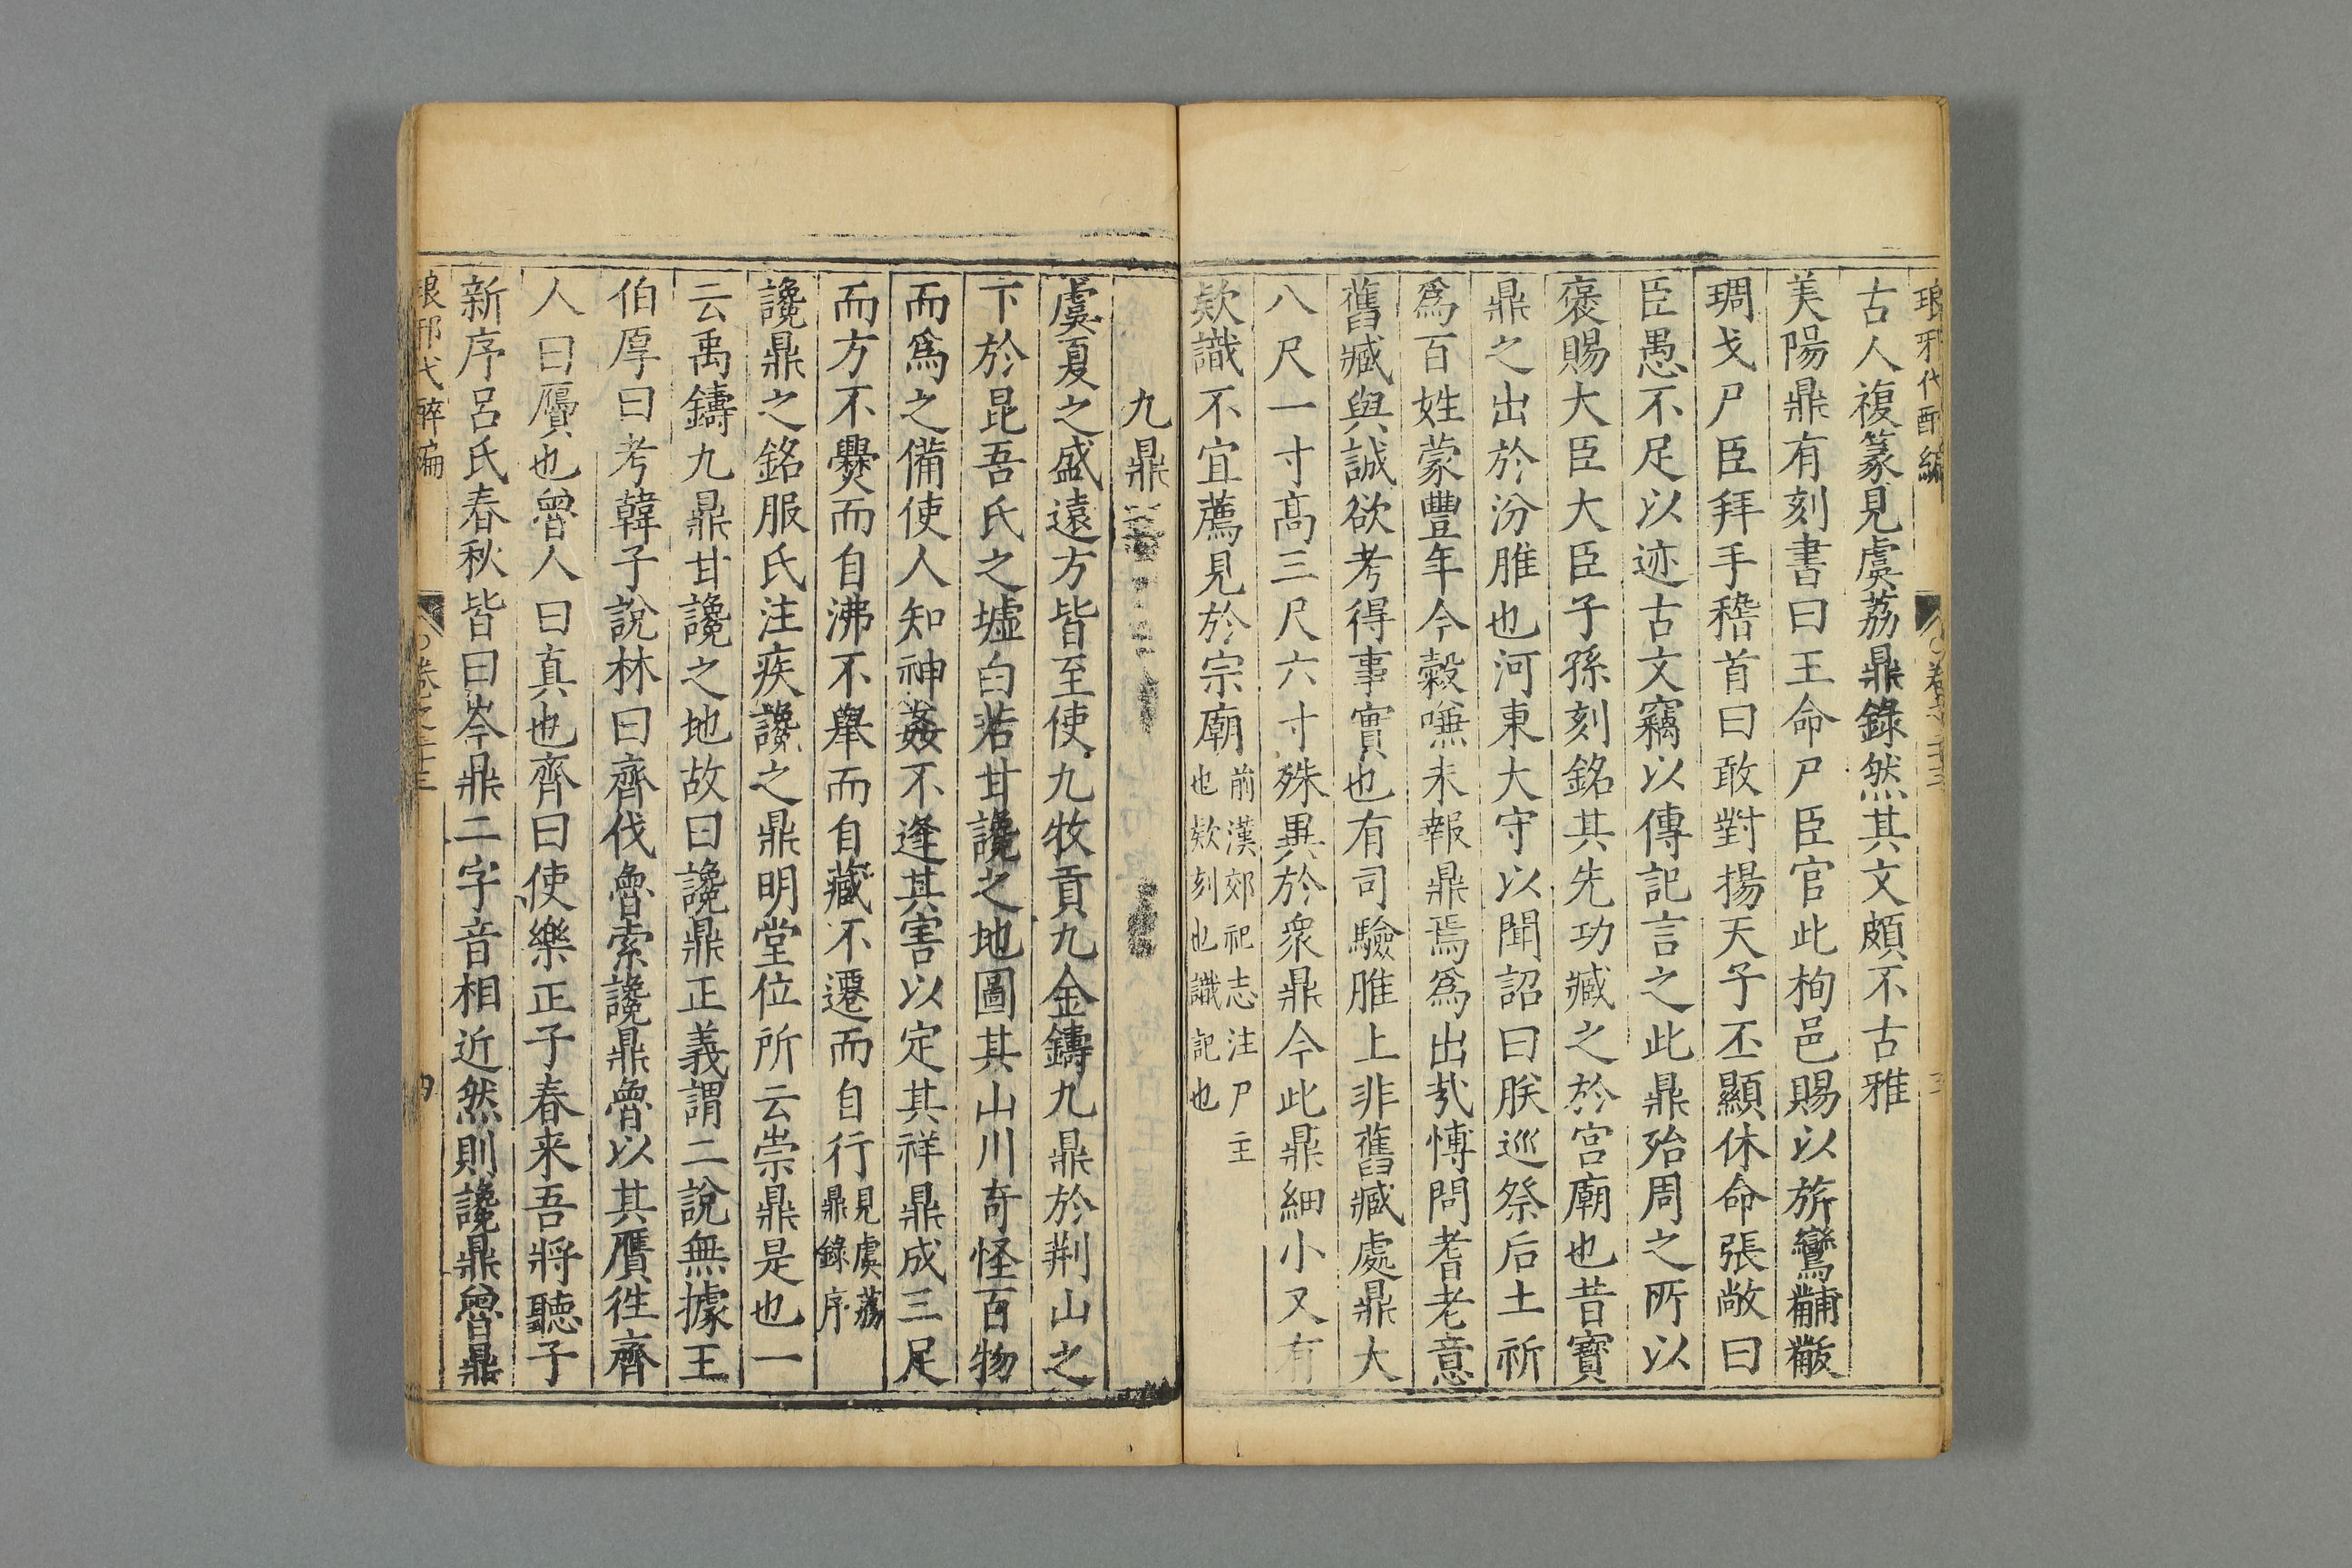 琅邪代醉編 卷之二十三 三
古人複篆見虞荔鼎錄然其文頗不古雅
美陽鼎有刻書曰王命尸臣官此栒邑賜以旂鸞黼黻
琱戈尸臣拜手稽首曰敢對揚天子丕顯休命張敞曰
臣愚不足以迹古文竊以傳記言之此鼎殆周之所以
褒賜大臣大臣子孫刻銘其先功臧之於宮廟也昔寶
鼎之出於汾脽也河東大守以聞詔曰朕巡祭后土祈
爲百姓蒙豐年今穀嗛未報鼎焉爲出㢤愽問耆老意
舊臧與誠欲考得事實也有司驗脽上非舊臧處鼎大
八尺一寸高三尺六寸殊異於衆鼎今此鼎細小又有
欵識不宜薦見於宗廟前漢郊祀志注尸主
也欵刻也識記也
九鼎
虞夏之盛遠方皆至使九牧貢九金鑄九鼎於荆山之
下於昆吾氏之墟白若甘讒之地圖其山川奇怪百物
而爲之備使人知神姦不逢其害以定其祥鼎成三足
而方不爨而自沸不舉而自藏不遷而自行見虞荔
鼎錄序
讒鼎之銘服氏注疾讒之鼎明堂位所云崇鼎是也一
云禹鑄九鼎甘讒之地故曰讒鼎正義謂二說無據王
伯厚曰考韓子說林曰齊伐魯索讒鼎魯以其贋徃齊
人曰贋也魯人曰真也齊曰使樂正子春来吾將聽子
新序呂氏春秋皆曰岑鼎二字音相近然則讒鼎魯鼎
琅邪代醉編 卷之二十三 四